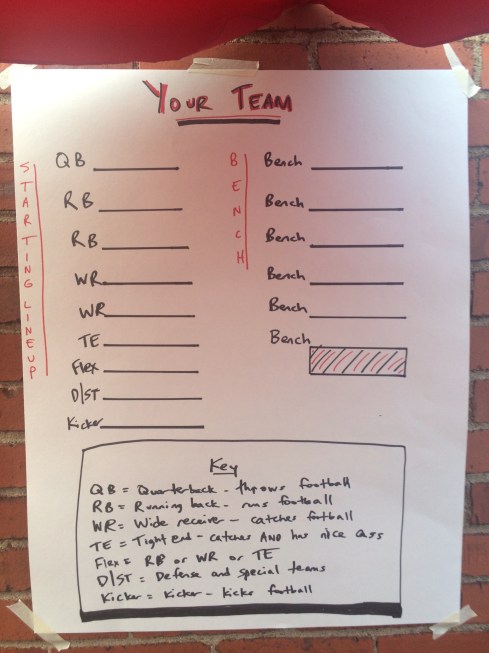 YOUR TEAM
STARTING LINEUP
QB
RB
RB
WR
WR
TE
Flex
D/ST
Kicker
BENCH
Bench
Bench
Bench
Bench
Bench
Bench
Key
QB = Quarterback - throws football
RB = Running back - runs football
WR = Wide receiver - catches football
TE = Tight end - catches AND has nice ass
Flex = RB or WR or TE
D/ST = Defense and special teams
Kicker = Kicker - kicks football